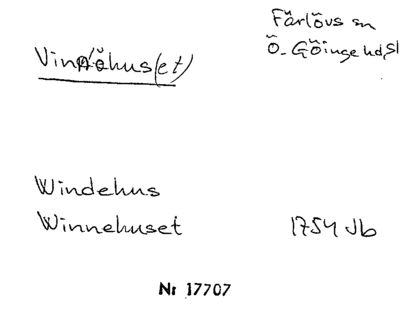 Färlövs sn
Ö. Göinge hd, Sk
Vinnöhus(et)
Windehus
Winnehuset 1754 Jb
Nr 17707